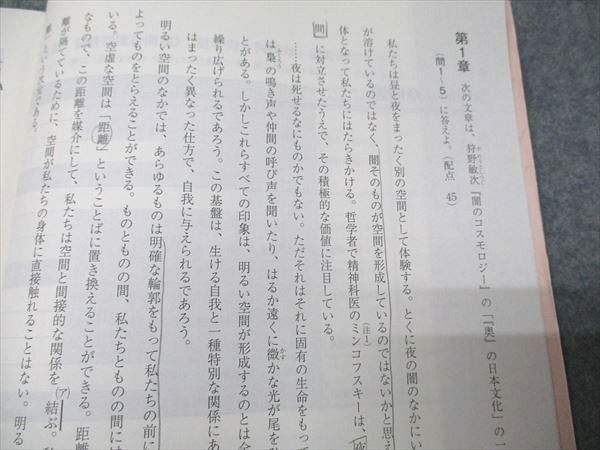 第1章 次の文章は、狩野敏次『闇のコスモロジー』の「『奥』の日本文化」の一
(問1〜5)に答えよ。(配点 45)
私たちは昼と夜をまったく別の空間として体験する。とくに夜の闇のなかにい
が溶けているのではなく、闇そのものが空間を形成しているのではないかと思え
体となって私たちにはたらきかける。哲学者で精神科医のミンコフスキーは、夜
間」に対立させたうえで、その積極的な価値に注目している。
……夜は死せるなにものかでもない。ただそれはそれに固有の生命をもって
は梟の鳴き声や仲間の呼び声を聞いたり、はるか遠くに微かな光が尾を
とがある。しかしこれらすべての印象は、明るい空間が形成するのとは全
繰り広げられるであろう。この基盤は、生ける自我と一種特別な関係にあ
はまったく異なった仕方で、自我に与えられるであろう。
明るい空間のなかでは、あらゆるものは明確な輪郭をもって私たちの前に
よってものをとらえることができる。ものともののの間、私たちとものの間には
いる。空虚な空間は「距離」ということばに置き換えることができる。距離
なもので、この距離を媒介にして、私たちは空間と間接的な関係を(ア)結ぶ。私
離が隔てているために、空間が私たちの身体に直接触れることはない。明る